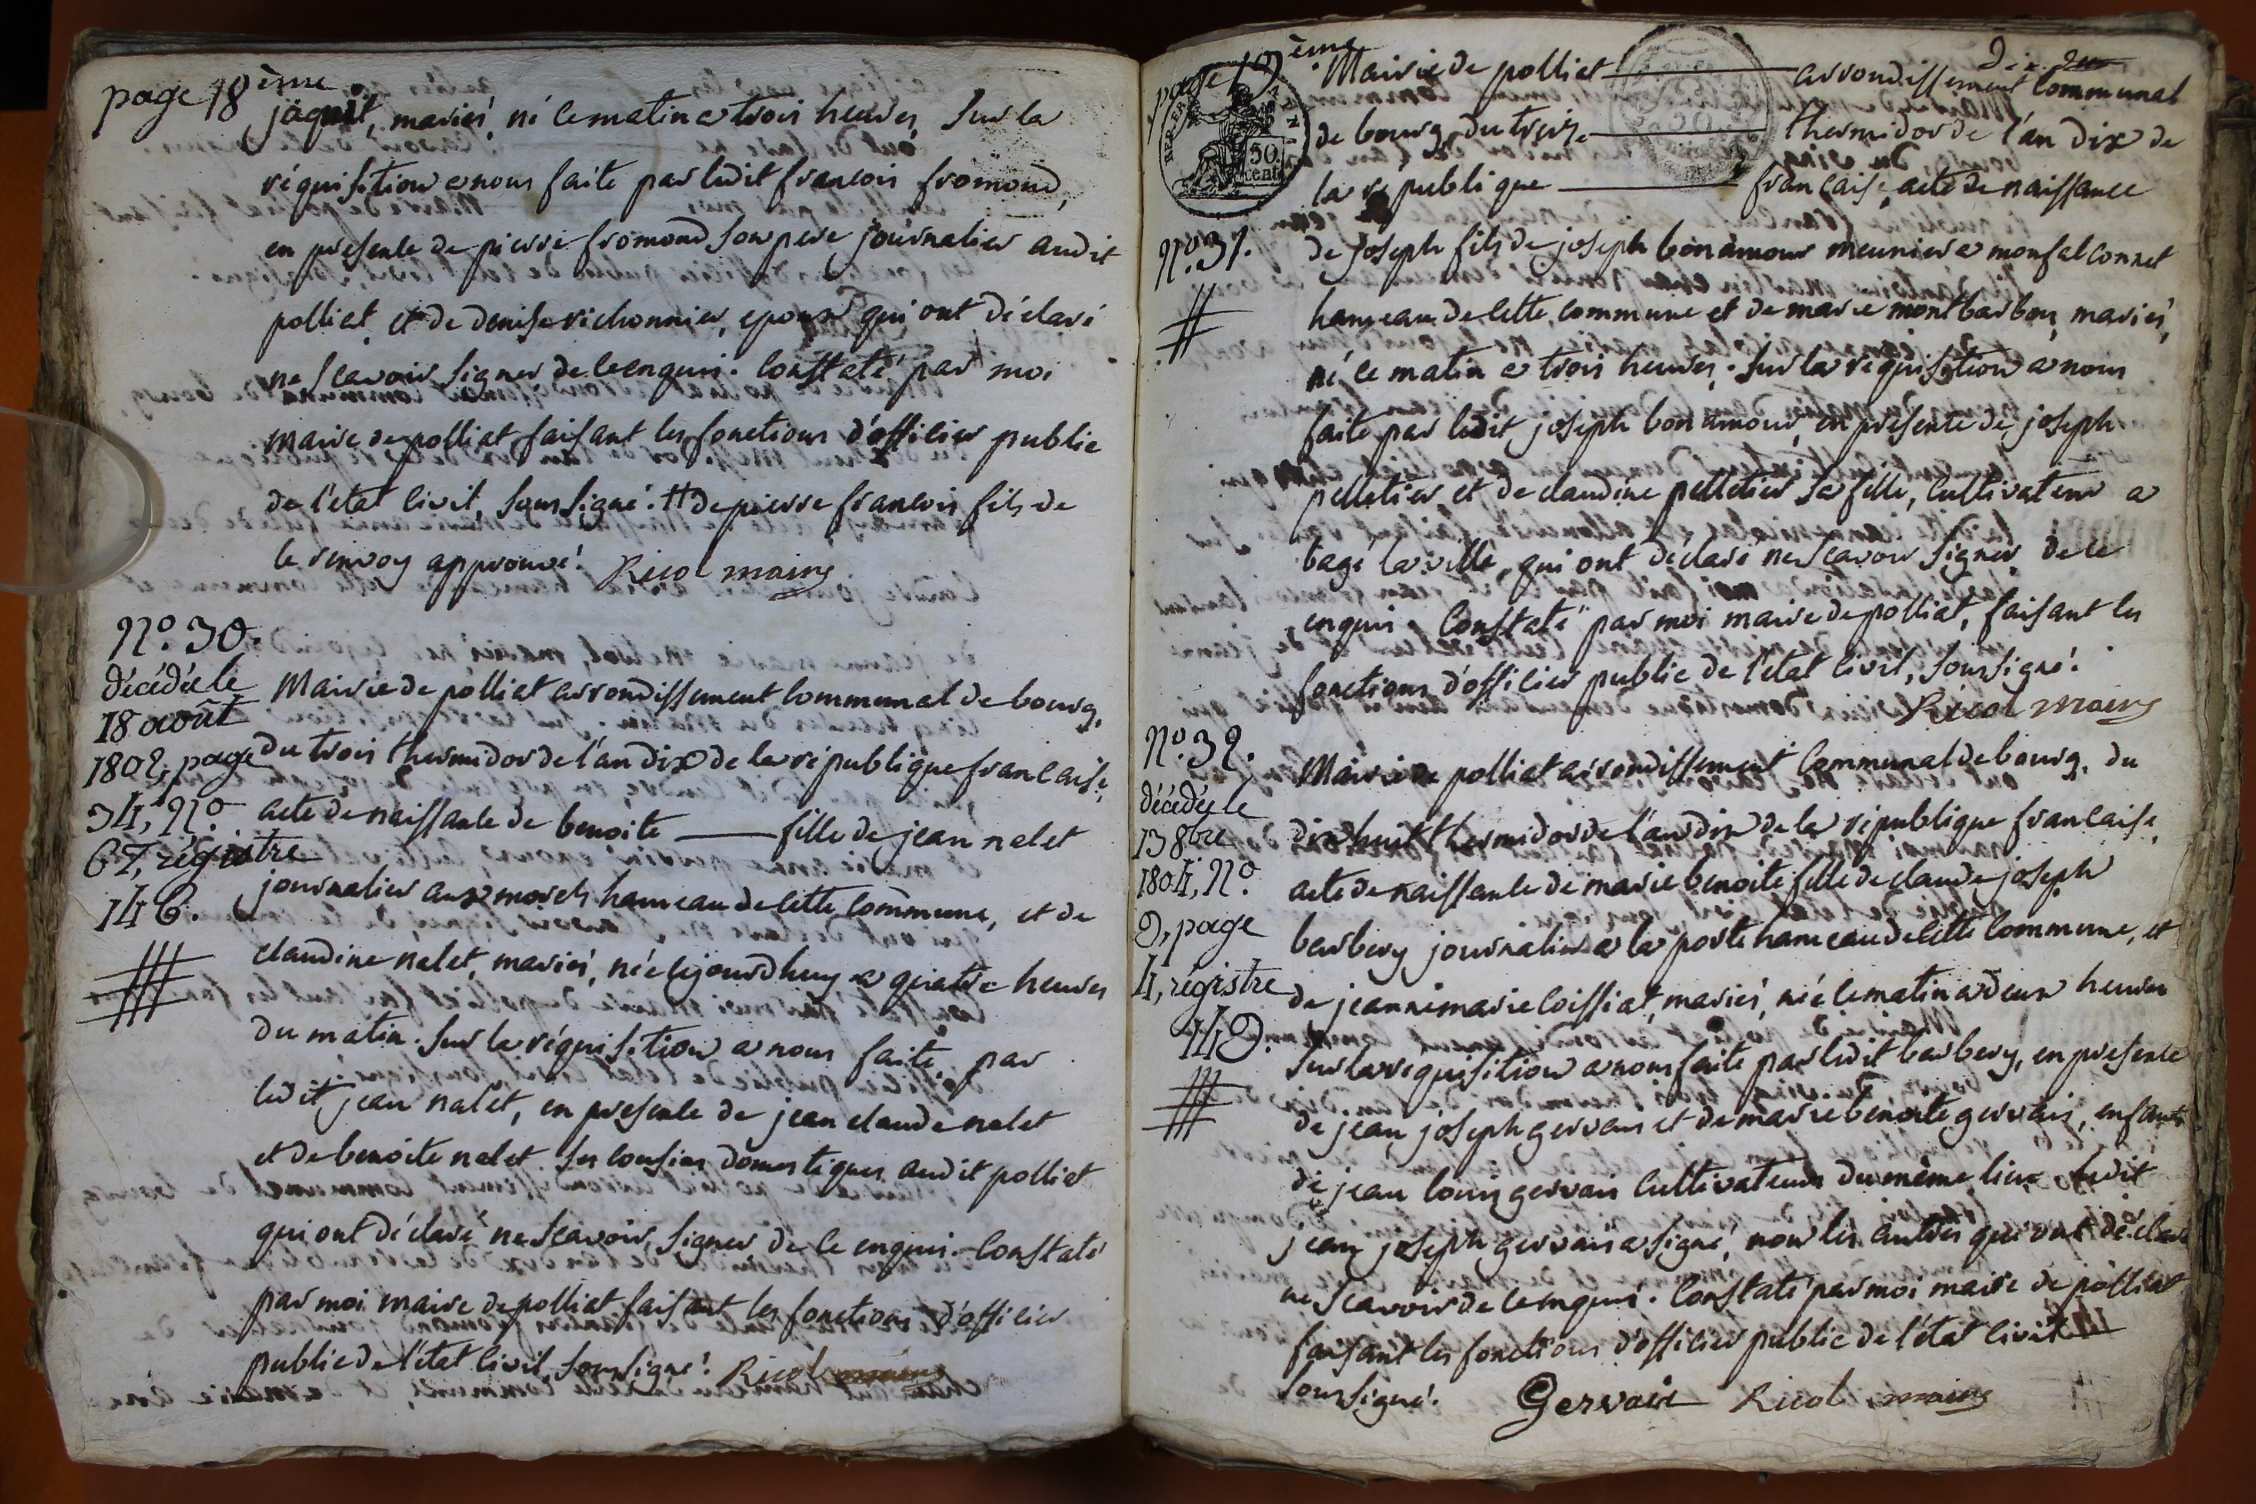 page 18ème
jaquet, mariés, né ce matin a trois heures, sur la
réquisition a nous faite par ledit françois fromond,
en presence de pierre fromond son pere journalier audit
polliat, et de denise richonnier, epoux qui ont déclaré
ne scavoir signer de ce enquis. Constaté par moi
maire de polliat faisant les fonctions d'officier public
de l'etat civil, soussigné. # de pierre francois fils de
le renvoy approuvé. Ricol maire
N.o 30.
décédée le
18 août
1802, page
34, N.o
67, régistre
146.
Mairie de polliat arrondissement communal de bourg,
du trois thermidor de l'an dix de la république francaise,
acte de naissance de benoite — fille de jean nalet
journalier aux morels hameau de cette commune, et de
claudine nalet, mariés, née cejourdhuy a quatre heures
du matin. sur la réquisition a nous faite par
ledit jean nalet, en presence de jean claude nalet
et de benoite nalet ses cousins domestiques audit polliat
qui ont déclaré ne scavoir signer de ce enquis. Constaté
par moi maire de polliat faisant les fonctions d'officier
public de l'état civil, soussigné. Ricol maire
page 19ème
REP. FRA.
50.
cent.
dix
Mairie de polliat — arrondissement communal
de bourg, du treize — thermidor de l'an dix de
la republique — française, acte de naissance
N.o 31.
de joseph fils de joseph bonamour meunier a monfalconnet
hameau de cette commune et de marie montbarbon, mariés,
né ce matin a trois heures. sur la réquisition a nous
faite par ledit joseph bonamour, en presence de joseph
pelletier et de claudine pelletier sa fille, cultivateur a
bagé la ville, qui ont déclaré ne scavoir signer de ce
enquis. Constaté par moi maire de polliat, faisant les
fonctions d'officier public de l'etat civil, soussigné.
Ricol maire
N.o 32.
décédée le
13 8bre
1804, N.o
9, page
4, régistre
149.
Mairie de polliat arrondissement Communal de bourg, du
dix huit thermidor de l'an dix de la république francaise,
acte de naissance de marie benoite fille de claude joseph
berbery journalier a la poste hameau de cette commune, et
de jeanne marie loissiat, mariés, née ce matin a deux heures
sur la requisition a nous faite par ledit barbery, en presence
de jean joseph gervais et de marie benoite gervais, enfants
de jean louis gervais cultivateurs du même lieu ledit
jean joseph gervais a signé, non les autres qui ont déclaré
ne scavoir de ce enquis. Constaté par moi maire de polliat
faisant les fonctions d'officier public de l'état civil
soussigné. Gervais Ricol maire